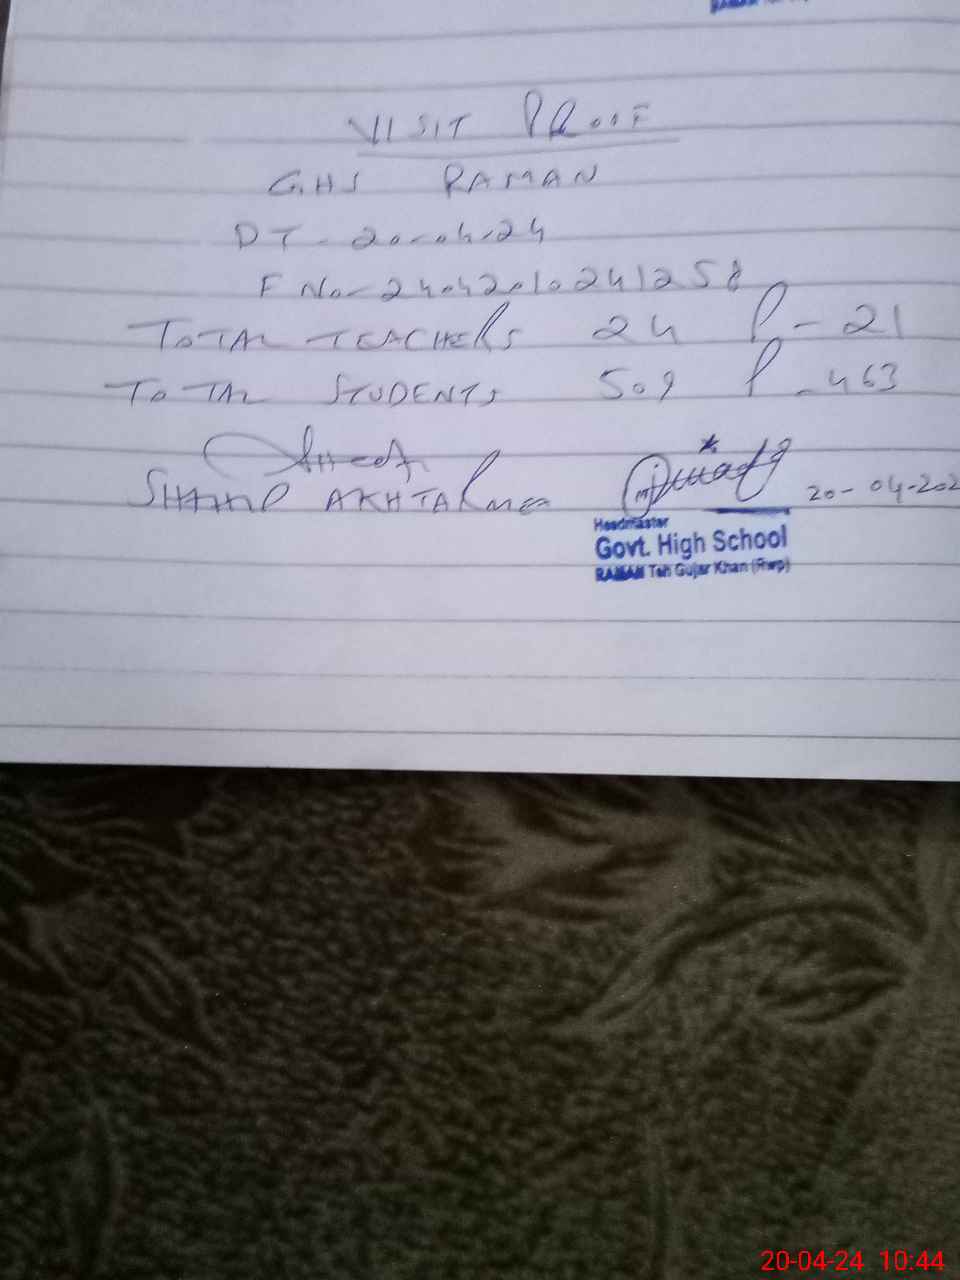 VISIT PROOF
GHS RAMAN
DT - 20-04-24
F No- 24042010241258
TOTAL TEACHERS 24 P - 21
TOTAL STUDENTS 509 P - 463
AKHTAR MEA
20-04-202
Headmaster
Govt. High School
RAMAN Teh Gujar Khan (Rwp)
20-04-24 10:44